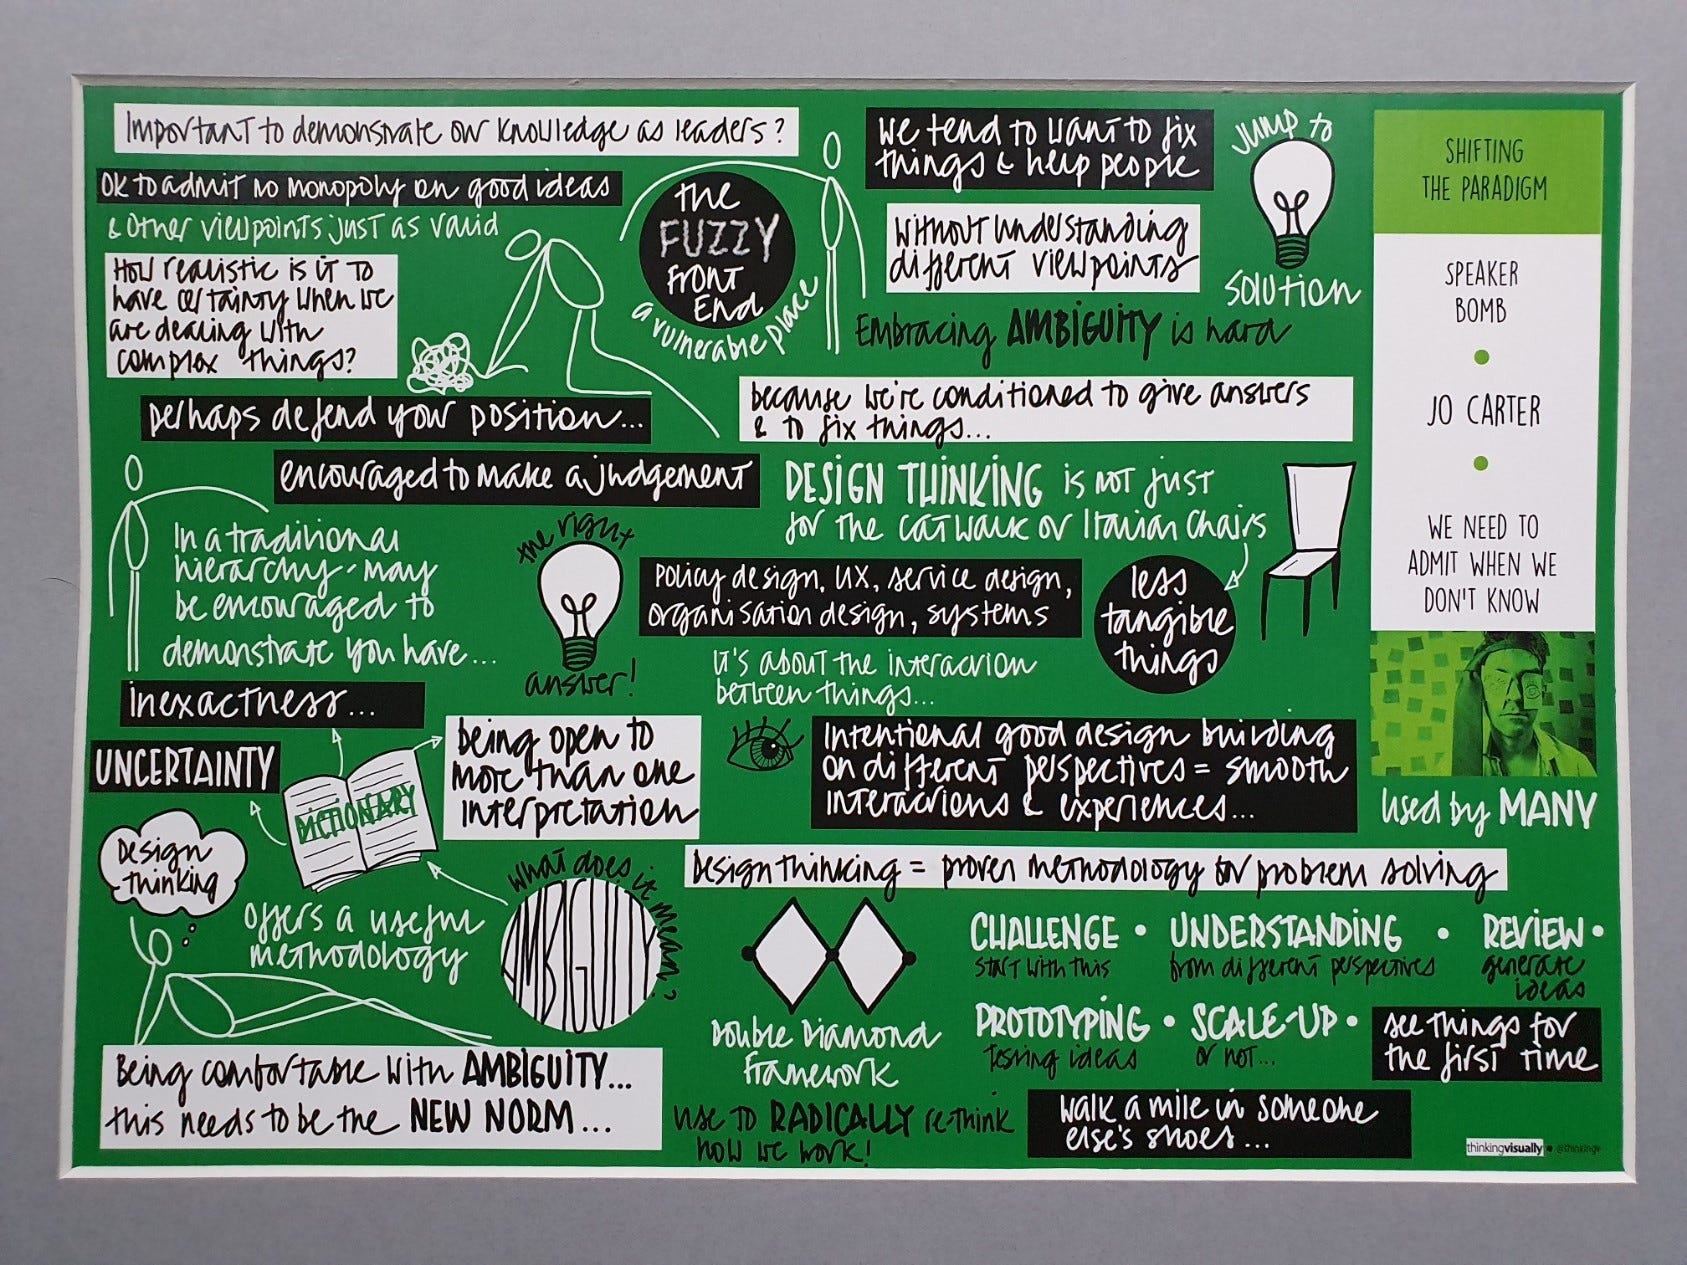 Important to demonstrate our knowledge as leaders?
OK to admit no monopoly on good ideas
& other viewpoints just as valid
How realistic is it to
have certainty when we
are dealing with
complex things?
perhaps defend your position...
the
FUZZY
front
End
a vulnerable place
We tend to want to fix
things & help people
without understanding
different viewpoints
Jump to
solution
Embracing AMBIGUITY is hard
because we're conditioned to give answers
& to fix things...
encouraged to make a judgement
In a traditional
hierarchy - may
be encouraged to
demonstrate you have...
the right
answer!
DESIGN THINKING is not just
for the catwalk or Italian chairs
policy design, UX, service design,
organisation design, systems
less
tangible
things
it's about the interaction
between things...
inexactness...
UNCERTAINTY
DICTIONARY
being open to
more than one
interpretation
Intentional good design building
on different perspectives = smooth
interactions & experiences...
Design
thinking
offers a useful
methodology
what does it mean?
AMBIGUITY
Being comfortable with AMBIGUITY...
this needs to be the NEW NORM...
Design thinking = proven methodology for problem solving
Double Diamond
framework
CHALLENGE • UNDERSTANDING • REVIEW •
start with this
from different perspectives
generate
ideas
PROTOTYPING • SCALE-UP •
testing ideas
or not...
see things for
the first time
use to RADICALLY re-think
how we work!
walk a mile in someone
else's shoes...
SHIFTING
THE PARADIGM
SPEAKER
BOMB
JO CARTER
WE NEED TO
ADMIT WHEN WE
DON'T KNOW
used by MANY
thinkingvisually